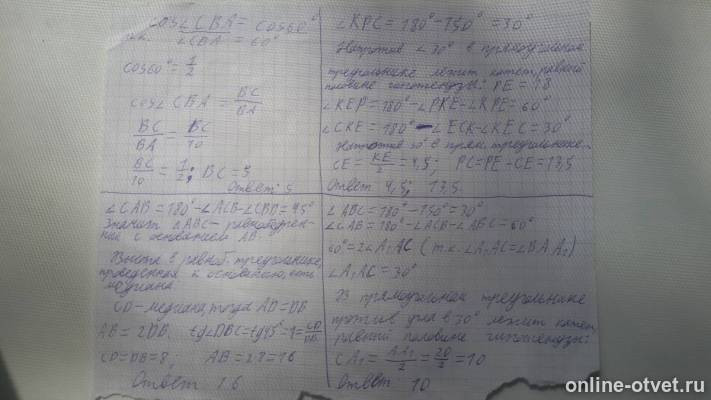 cos∠CBA = cos60°
т.к. ∠CBA = 60°
cos60° = 1/2
cos∠CBA = BC/BA
BC/BA = BC/10
BC/10 = 1/2; BC = 5
Ответ: 5
∠KPC = 180° - 150° = 30°
Напротив ∠30° в прямоугольном
треугольнике лежит катет, равный
половине гипотенузы: PE = 18
∠KEP = 180° - ∠PKE - ∠KPE = 60°
∠CKE = 180° - ∠ECK - ∠KEC = 30°
Напротив 30° в прям. треугольнике
CE = KE/2 = 4,5; PC = PE - CE = 13,5
Ответ 4,5; 13,5.
∠CAB = 180° - ∠ACB - ∠CBD = 45°
значит △ABC - равнобедрен-
ный с основанием AB.
Высота в равноб. треугольнике,
проведенная к основанию, есть
медиана.
CD - медиана, тогда AD = DB
AB = 2DB. tg∠DBC = tg45° = 1 = CD/DB
CD = DB = 8, AB = 2·8 = 16
Ответ 16
∠ABC = 180° - 150° = 30°
∠CAB = 180° - ∠ACB - ∠ABC = 60°
60° = 2∠A₁AC (т.к. ∠A₁AC = ∠BAA₁)
∠A₁AC = 30°
В прямоугольном треугольнике
против угла в 30° лежит катет,
равный половине гипотенузы:
CA₁ = AA₁/2 = 20/2 = 10
Ответ 10
online-otvet.ru